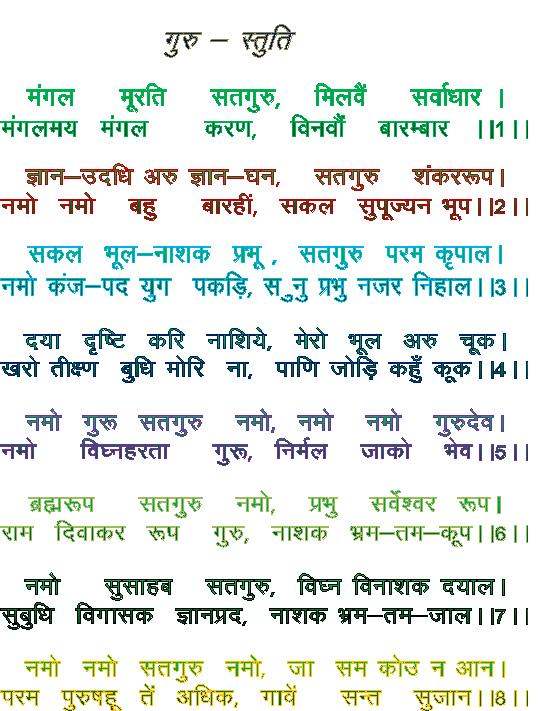 गुरु – स्तुति
मंगल मूरति सतगुरु, मिलवैं सर्वाधार |
मंगलमय मंगल करण, विनवौं बारम्बार ||1||
ज्ञान–उदधि अरु ज्ञान–घन, सतगुरु शंकररूप|
नमो नमो बहु बारहीं, सकल सुपूज्यन भूप||2||
सकल भूल–नाशक प्रभू , सतगुरु परम कृपाल|
नमो कंज–पद युग पकड़ि, सुनु प्रभु नजर निहाल||3||
दया दृष्टि करि नाशिये, मेरो भूल अरु चूक|
खरो तीक्ष्ण बुधि मोरि ना, पाणि जोड़ि कहुँ कूक||4||
नमो गुरू सतगुरु नमो, नमो नमो गुरुदेव|
नमो विघ्नहरता गुरू, निर्मल जाको भेव||5||
ब्रह्मरूप सतगुरु नमो, प्रभु सर्वेश्वर रूप|
राम दिवाकर रूप गुरु, नाशक भ्रम–तम–कूप||6||
नमो सुसाहब सतगुरु, विघ्न विनाशक दयाल|
सुबुधि विगासक ज्ञानप्रद, नाशक भ्रम–तम–जाल||7||
नमो नमो सतगुरु नमो, जा सम कोउ न आन|
परम पुरुषहू तें अधिक, गावें सन्त सुजान||8||